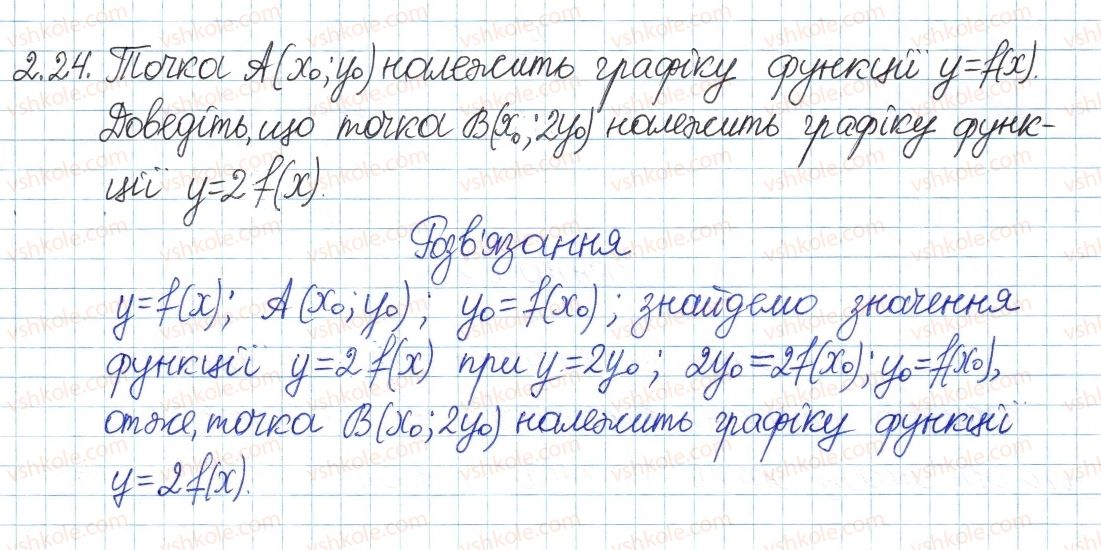 2.24. Точка A(x₀; y₀) належить графіку функції y=f(x).
Доведіть, що точка B(x₀; 2y₀) належить графіку функ-
ції y=2f(x).
Розв'язання
y=f(x); A(x₀; y₀); y₀=f(x₀); знайдемо значення
функції y=2f(x) при y=2y₀; 2y₀=2f(x₀); y₀=f(x₀),
отже, точка B(x₀; 2y₀) належить графіку функції
y=2f(x).